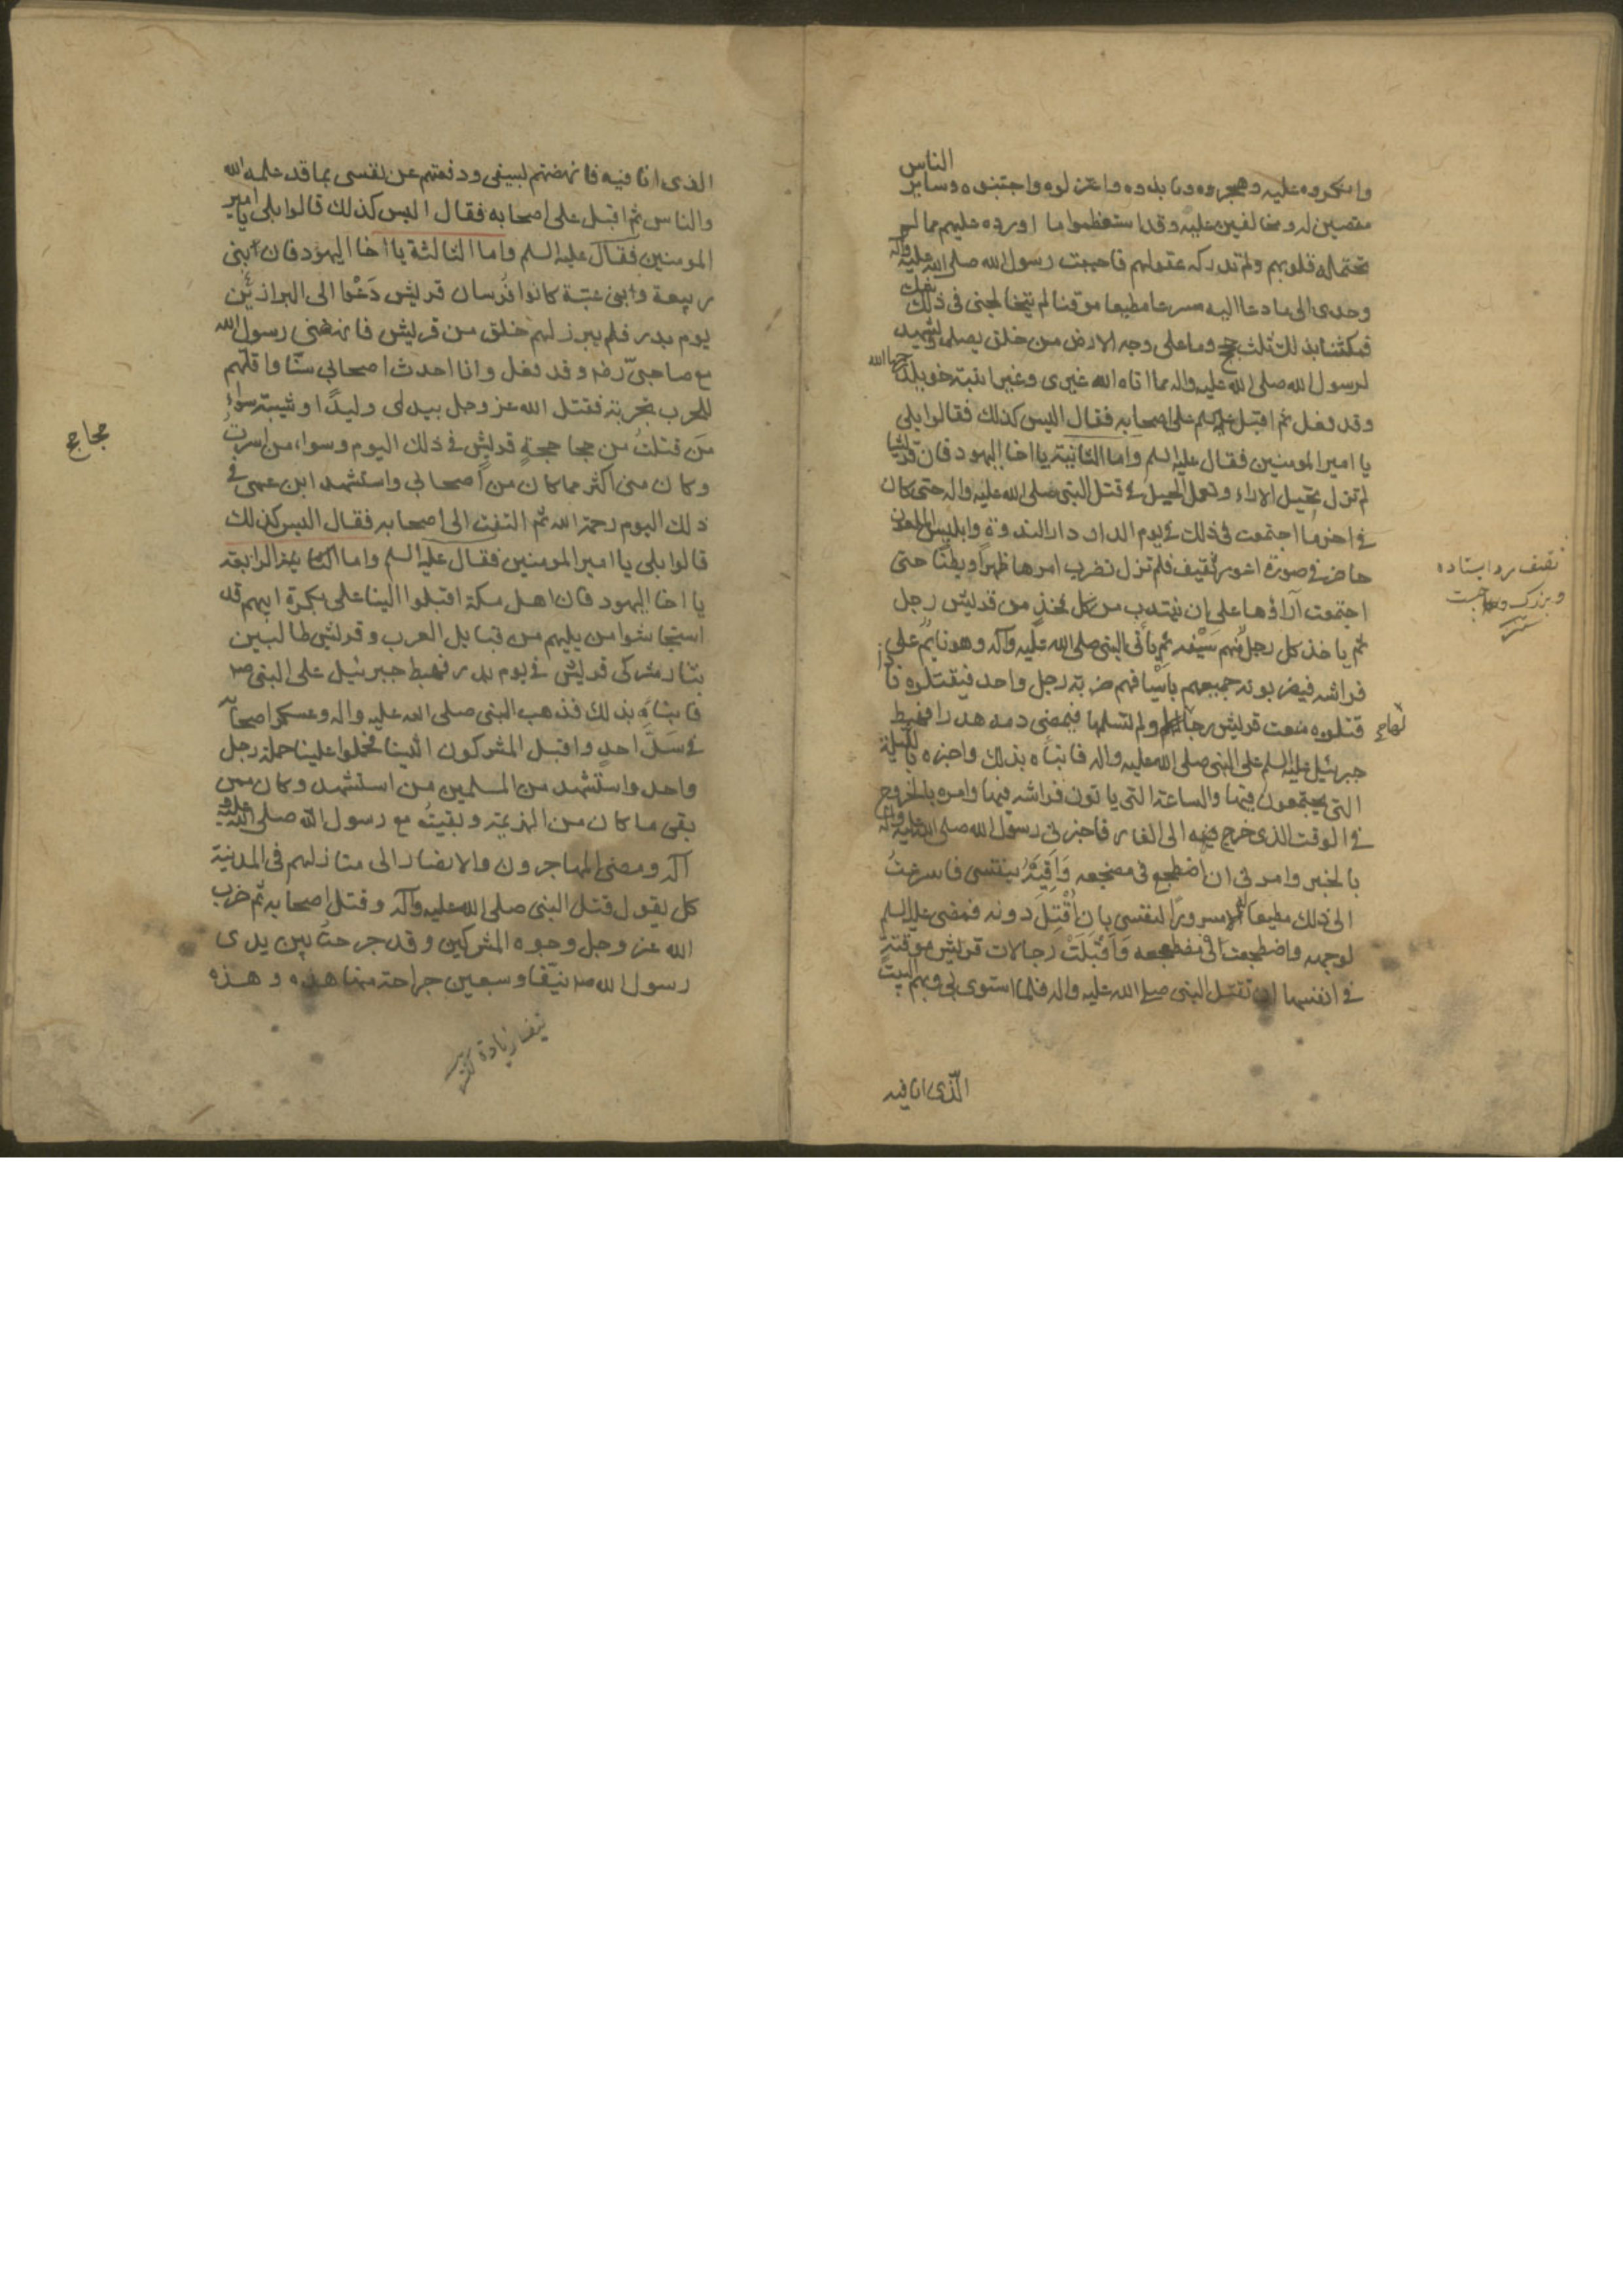 وانكروه عليه وهجروه ونابذوه واعتزلوه واجتنبوه وساير الناس
مقصين له ومخالفين عليه وقد استعظموا ما اورده عليهم مما لم
تحتمله قلوبهم ولم تدركه عقولهم فاجبت رسول الله صلى الله عليه وآله
وحدى الى ما دعا اليه مسرعا مطيعا موقنا لم يتخالجنى فى ذلك شك
فمكثنا بذلك ثلث حجج وما على وجه الارض من خلق يصلى او يشهد
لرسول الله صلى الله عليه واله مما اتاه الله غيرى وغير ابنة خويلد رحمها الله
وقد فعل ثم اقبل عليه السلم على اصحابه فقال اليس كذلك فقالوا بلى
يا امير المومنين فقال عليه السلم واما الثانية يا اخا اليهود فان قريشا
لم تزل تخيل الاراء وتعمل الحيل فى قتل النبى صلى الله عليه واله حتى كان
فى اخر ما اجتمعت فى ذلك فى يوم الدار دار الندوة وابليس الملعون
حاضر فى صورة اعور ثقيف فلم تزل تضرب امرها ظهرا وبطنا حتى
اجتمعت آراؤها على ان ينتدب من كل فخذ من قريش رجل
ثم ياخذ كل رجل منهم سيفه ثم يأتى النبى صلى الله عليه وآله وهو نايم على
فراشه فيضربونه جميعهم باسيافهم ضربة رجل واحد فيقتلوه فاذا
قتلوه منعت قريش رجالها ولم تسلمها فيمضى دمه هدرا فهبط
جبرئيل عليه السلم على النبى صلى الله عليه واله فانبأه بذلك واخبره بالليلة
التى يجتمعون فيها والساعة التى ياتون فراشه فيها وامره بالخروج
فى الوقت الذى خرج فيه الى الغار فاخبرنى رسول الله صلى الله عليه وآله
بالخبر وامرنى ان اضطجع فى مضجعه وَاَقِيَهُ بنفسى فاسرعتُ
الى ذلك مطيعا له مسرورًا لنفسى بان اُقْتَلَ دونه فمضى عليه السلم
لوجهه واضطجعت فى مضطجعه وَاَقْبَلَتْ رجالات قريش موقنةً
فى انفسها ان تقتل النبى صلى الله عليه واله فلما استوى بى وبهم البيت
الّذى انا فيه
ثقيف
وبزرك
الذى انا فيه فانهضتهم بسيفى ودفعتهم عن نفسى بما قد علمه الله
والناس ثم اقبل على اصحابه فقال اليس كذلك قالوا بلى يا امير
المومنين فقال عليه السلم واما الثالثة يا اخا اليهود فان ابنى
ربيعة وابن عتبة كانوا فرسان قريش دَعَوْا الى البراز
يوم بدر فلم يبرز لهم خلق من قريش فانهضنى رسول الله
مع صاحبىّ رضه وقد فعل وانا احدث اصحابى سنّا واقلّهم
للحرب تجربة فقتل الله عز وجل بيدى وليدًا وشيبة سواءُ
مَن قتلتُ من جحاجحةٍ قريش فى ذلك اليوم وسواء من اسرتُ
وكان منى اكثر مما كان من اصحابى واستشهد ابن عمى فى
ذلك اليوم رحمة الله ثم التفت الى اصحابه فقال اليس كذلك
قالوا بلى يا امير المومنين فقال عليه السلم واما الرابعة
يا اخا اليهود فان اهل مكة اقبلوا الينا على بكرة ابيهم قد
استجاشوا من يليهم من قبايل العرب وقريش طالبين
بثار مشركى قريش فى يوم بدر فهبط جبرئيل على النبى ص
فانبئاه بذلك فذهب النبى صلى الله عليه واله وعسكر اصحابه
فى سَدّ احدٍ واقبل المشركون الينا فحملوا علينا حملة رجل
واحد واستشهد من المسلمين من استشهد وكان ممن
بقى ما كان من الهزيمة وبقيتُ مع رسول الله صلى الله عليه و
آله ومضى المهاجرون والانصار الى منازلهم فى المدينة
كل يقول قتل النبى صلى الله عليه وآله وقتل اصحابه ثم ضرب
الله عز وجل وجوه المشركين وقد جرحتُ بين يدى
رسول الله ص نيّفا وسبعين جراحة منها هذه وهذه
نيف زيادة